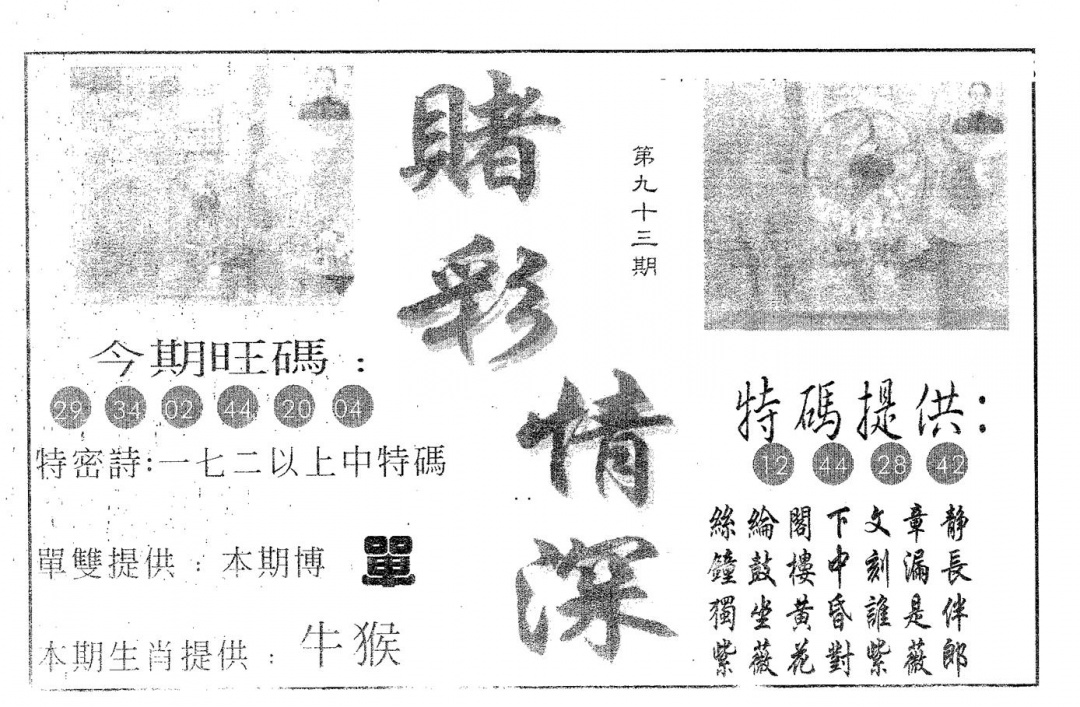 賭彩情深
第九十三期
今期旺碼：
29 34 02 44 20 04
特密詩:一七二以上中特碼
單雙提供：本期博 單
本期生肖提供：牛猴
特碼提供:
12 44 28 42
絲綸閣下文章静
鐘鼓樓中刻漏長
獨坐黃昏誰是伴
紫薇花對紫薇郎